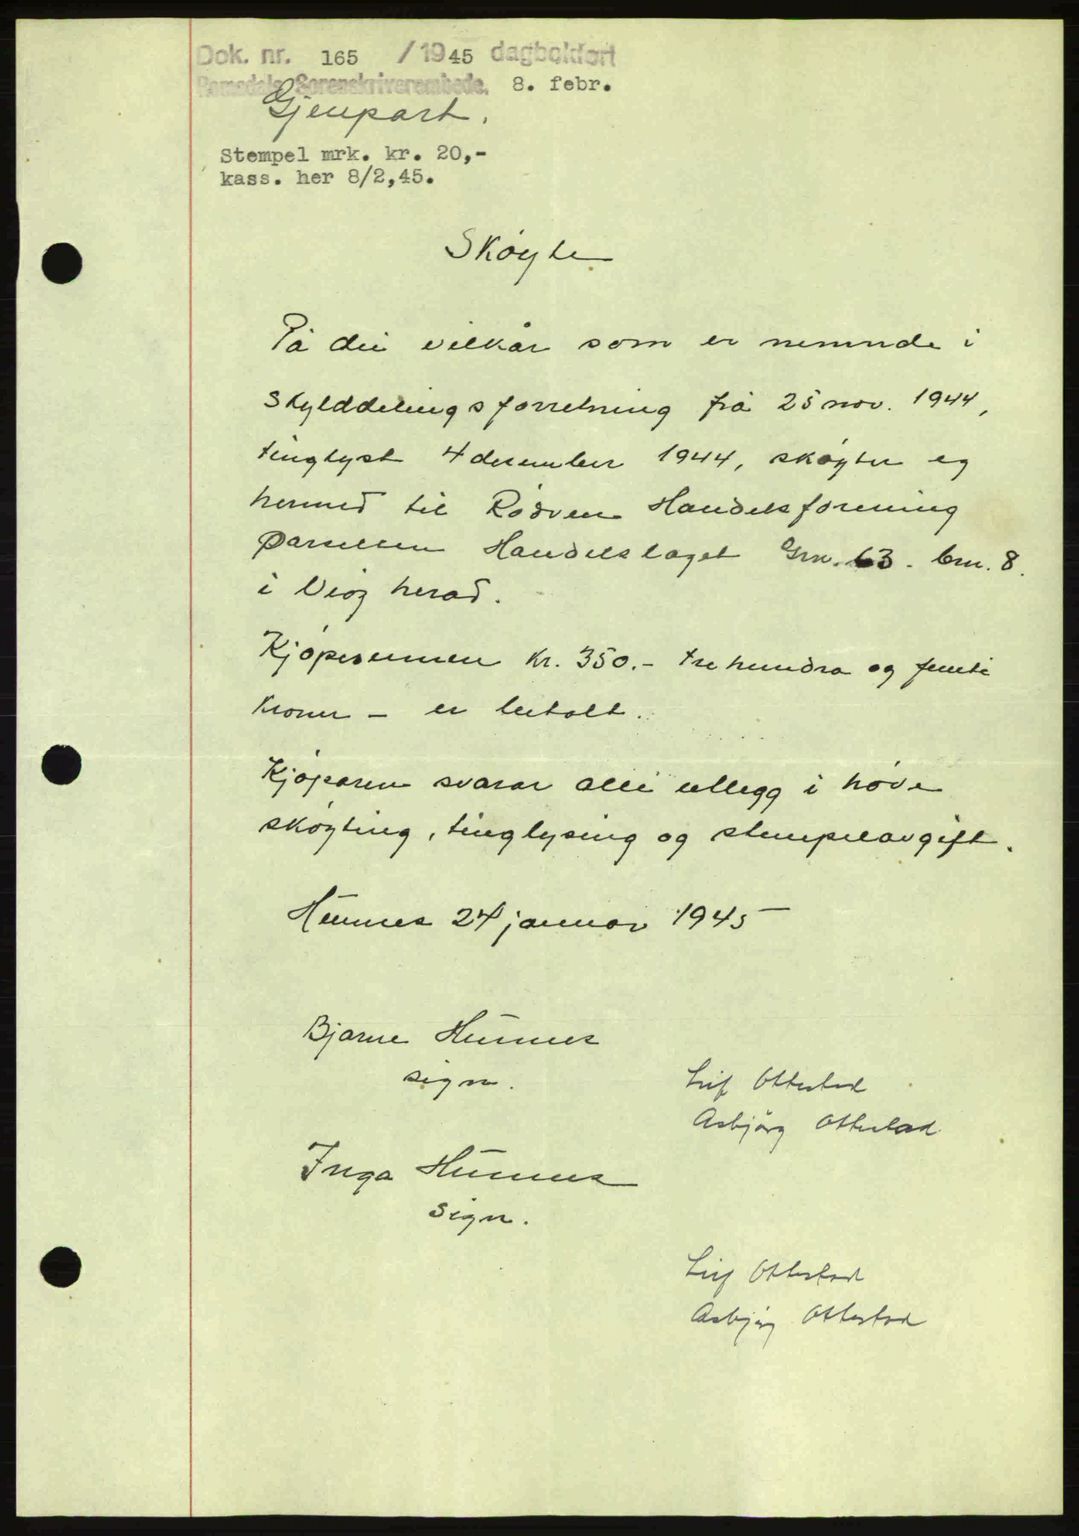 Dok. nr. 165 / 1945 dagbokført
Romsdals Sorenskriverembede. 8. febr.
Gjenpart.
Stempel mrk. kr. 20,-
kass. her 8/2,45.
Skøyte
På dei vilkår som er nemnde i
skylddelingsforretning frå 25 nov. 1944,
tinglyst 4 desember 1944, skøyter eg
hermed til Rødven Handelsforening
parsellen Handelslaget Grn. 63. brn. 8.
i Veøy herad.
Kjøpesummen kr. 350.- tre hundra og femti
kroner - er betalt.
Kjøparen svarar alle utlegg i høve
skøyting, tinglysing og stempelavgift.
Hunnes 24 januar 1945
Bjarne Hunnes
sign.
Leif Otterstad
Asbjörg Otterstad
Inga Hunnes
sign.
Leif Otterstad
Asbjörg Otterstad